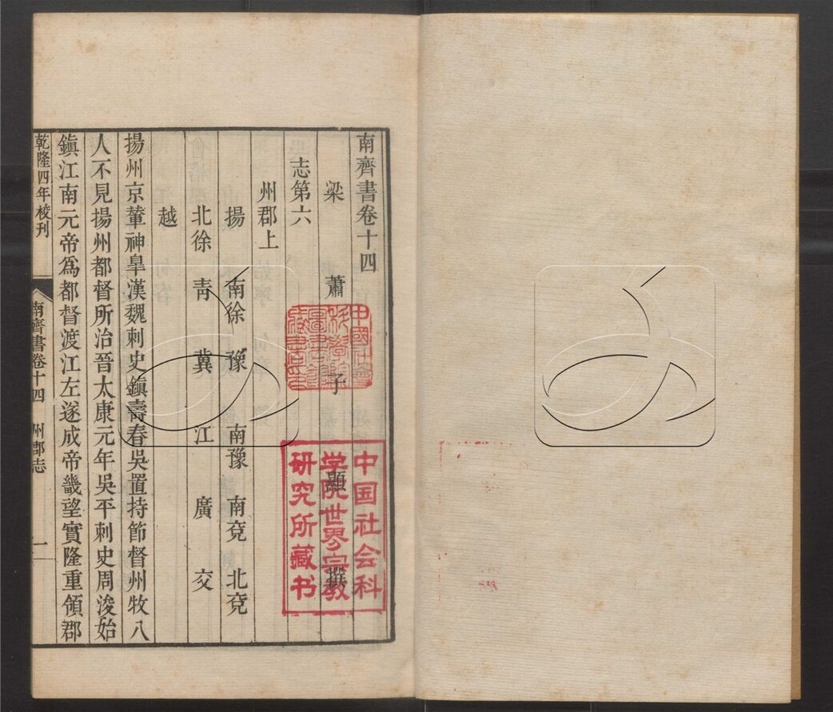 南齊書卷十四
梁 蕭 子 顯 撰
志第六
州郡上
揚 南徐 豫 南豫 南兗 北兗
北徐 青 冀 江 廣 交
越
揚州京輦神皐漢魏刺史鎭壽春吳置持節督州牧八
人不見揚州都督所治晉太康元年吳平刺史周浚始
鎭江南元帝爲都督渡江左遂成帝畿望實隆重領郡
乾隆四年校刊
南齊書卷十四 州郡志
一
中国社会科
学院世界宗教
研究所藏书